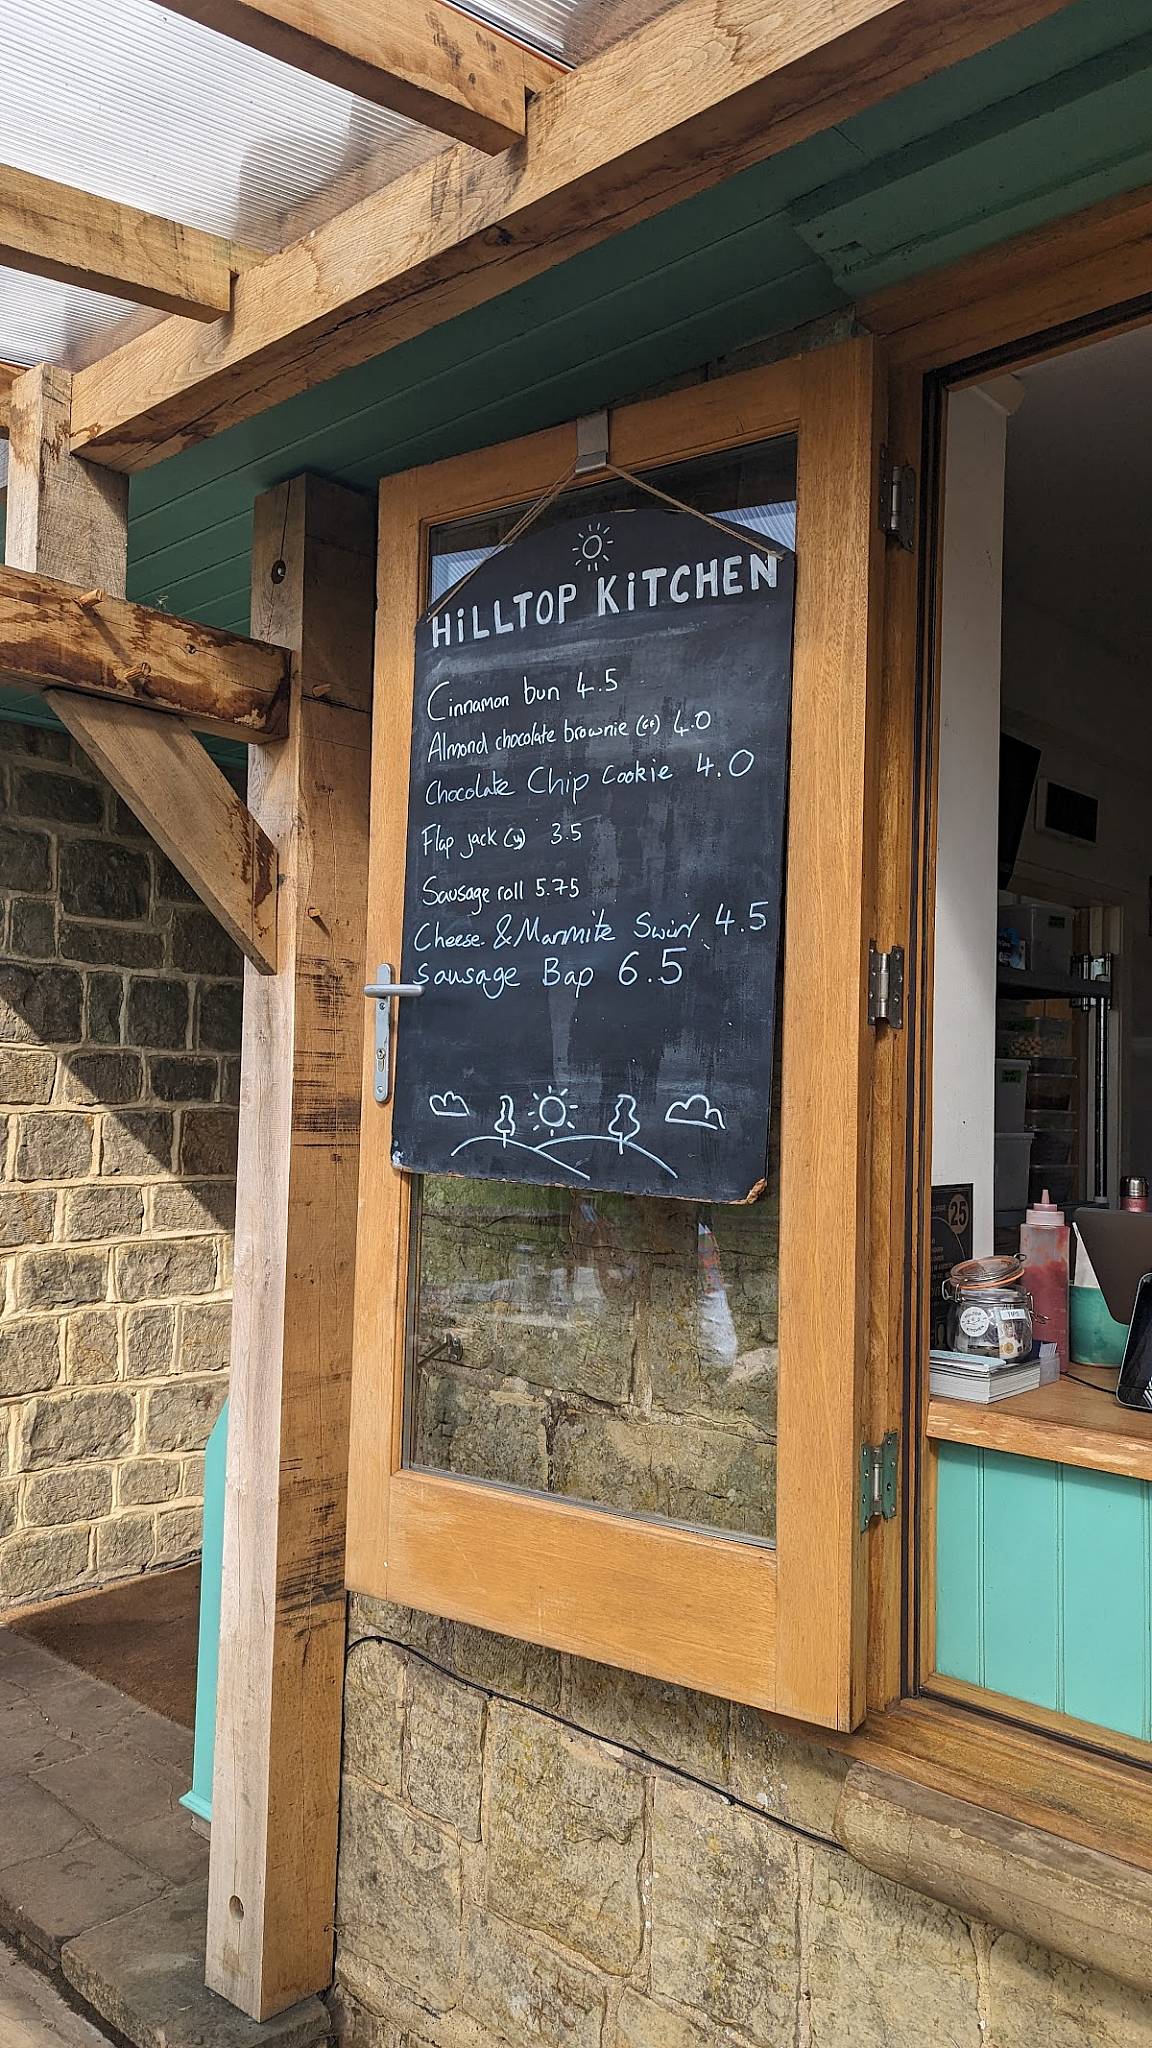 HiLLTOP KiTCHEN
Cinnamon bun 4.5
Almond chocolate brownie (GF) 4.0
Chocolate Chip Cookie 4.0
Flap jack (vg) 3.5
Sausage roll 5.75
Cheese & Marmite Swirl 4.5
Sausage Bap 6.5
25
TIPS
KITCHEN